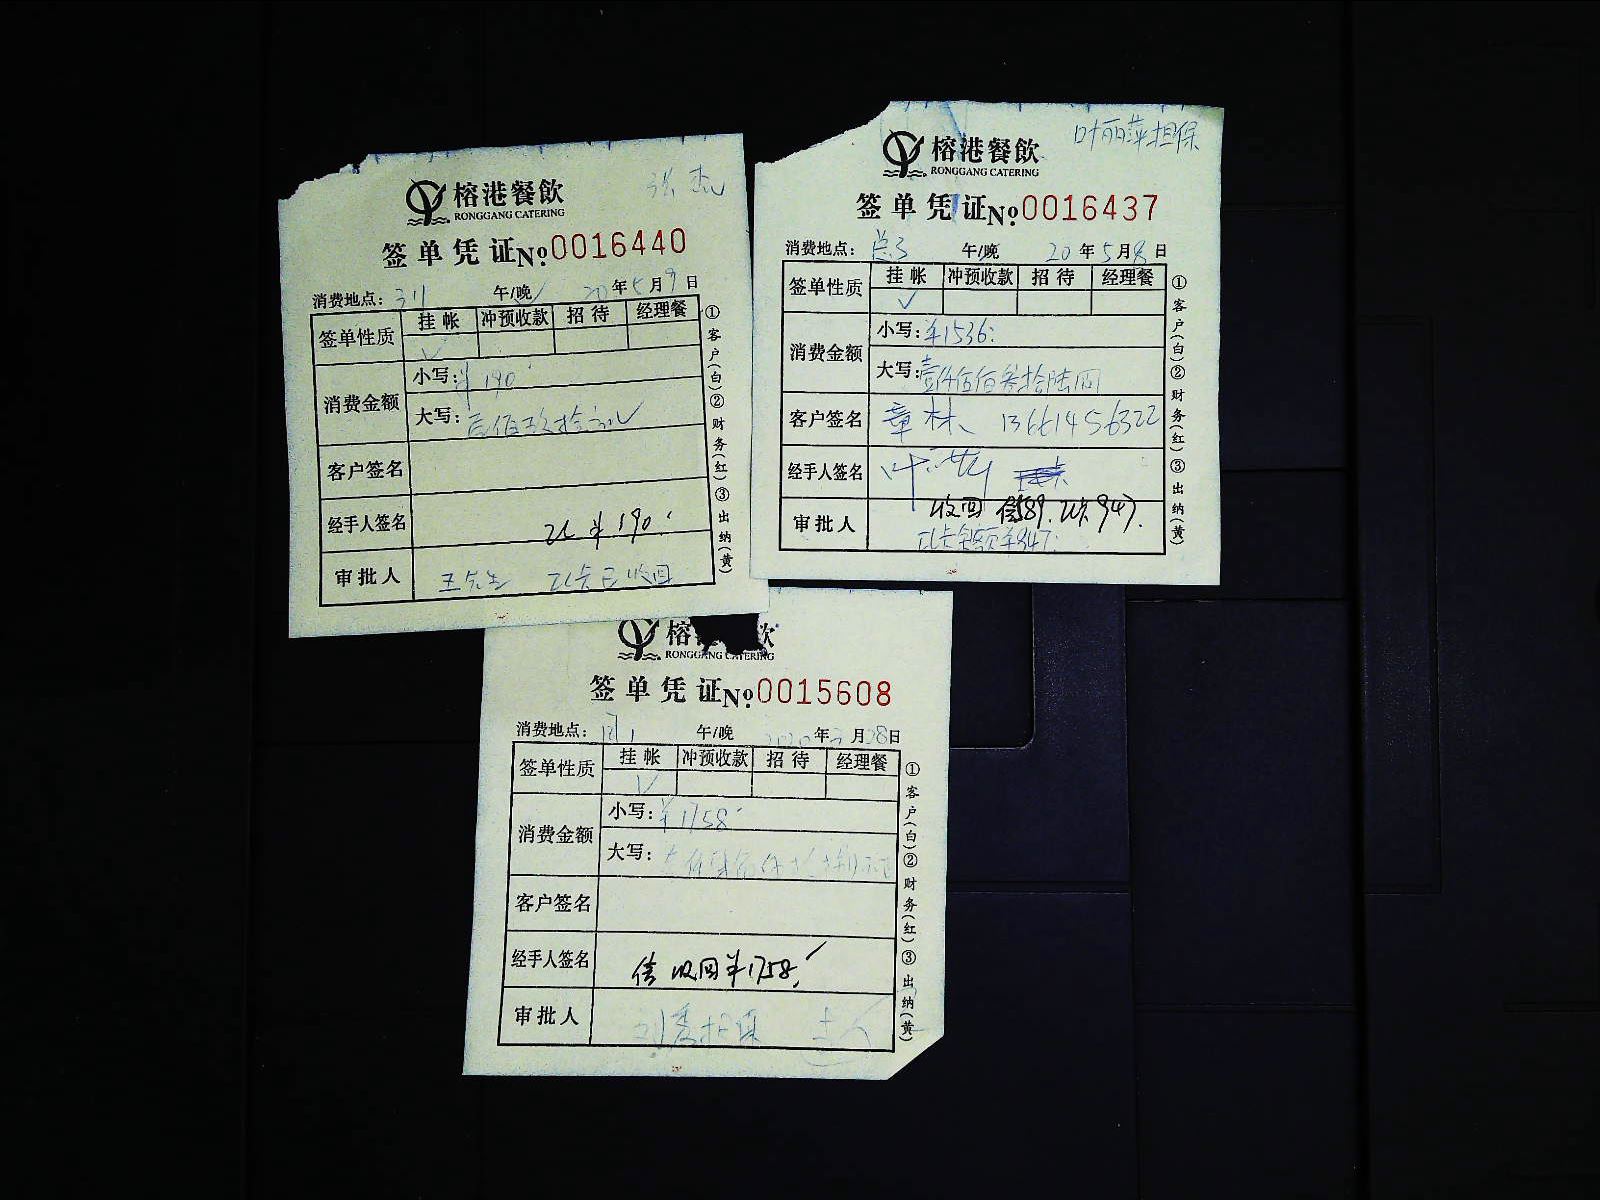 张杰
榕港餐飲
RONGGANG CATERING
签单凭证 No 0016440
消费地点： 午/晚 20 年 5 月 9 日
签单性质 挂帐 冲预收款 招待 经理餐
✓
消费金额 小写：¥190
大写：壹佰玖拾元
客户签名
经手人签名 ¥190
审批人 王先生 已收回
①客户(白)②财务(红)③出纳(黄)
叶丽萍担保
榕港餐飲
RONGGANG CATERING
签单凭证 No 0016437
消费地点： 午/晚 20 年 5 月 8 日
签单性质 挂帐 冲预收款 招待 经理餐
✓
消费金额 小写：¥1536
大写：壹仟伍佰叁拾陆
客户签名 章林 13661456322
经手人签名
审批人 收回 947.
①客户(白)②财务(红)③出纳(黄)
榕 飲
RONGGANG CATERING
签单凭证 No 0015608
消费地点： 午/晚 2020 年 月 28 日
签单性质 挂帐 冲预收款 招待 经理餐
✓
消费金额 小写：¥1758
大写：
客户签名
经手人签名 收回¥1758
审批人 担保
①客户(白)②财务(红)③出纳(黄)